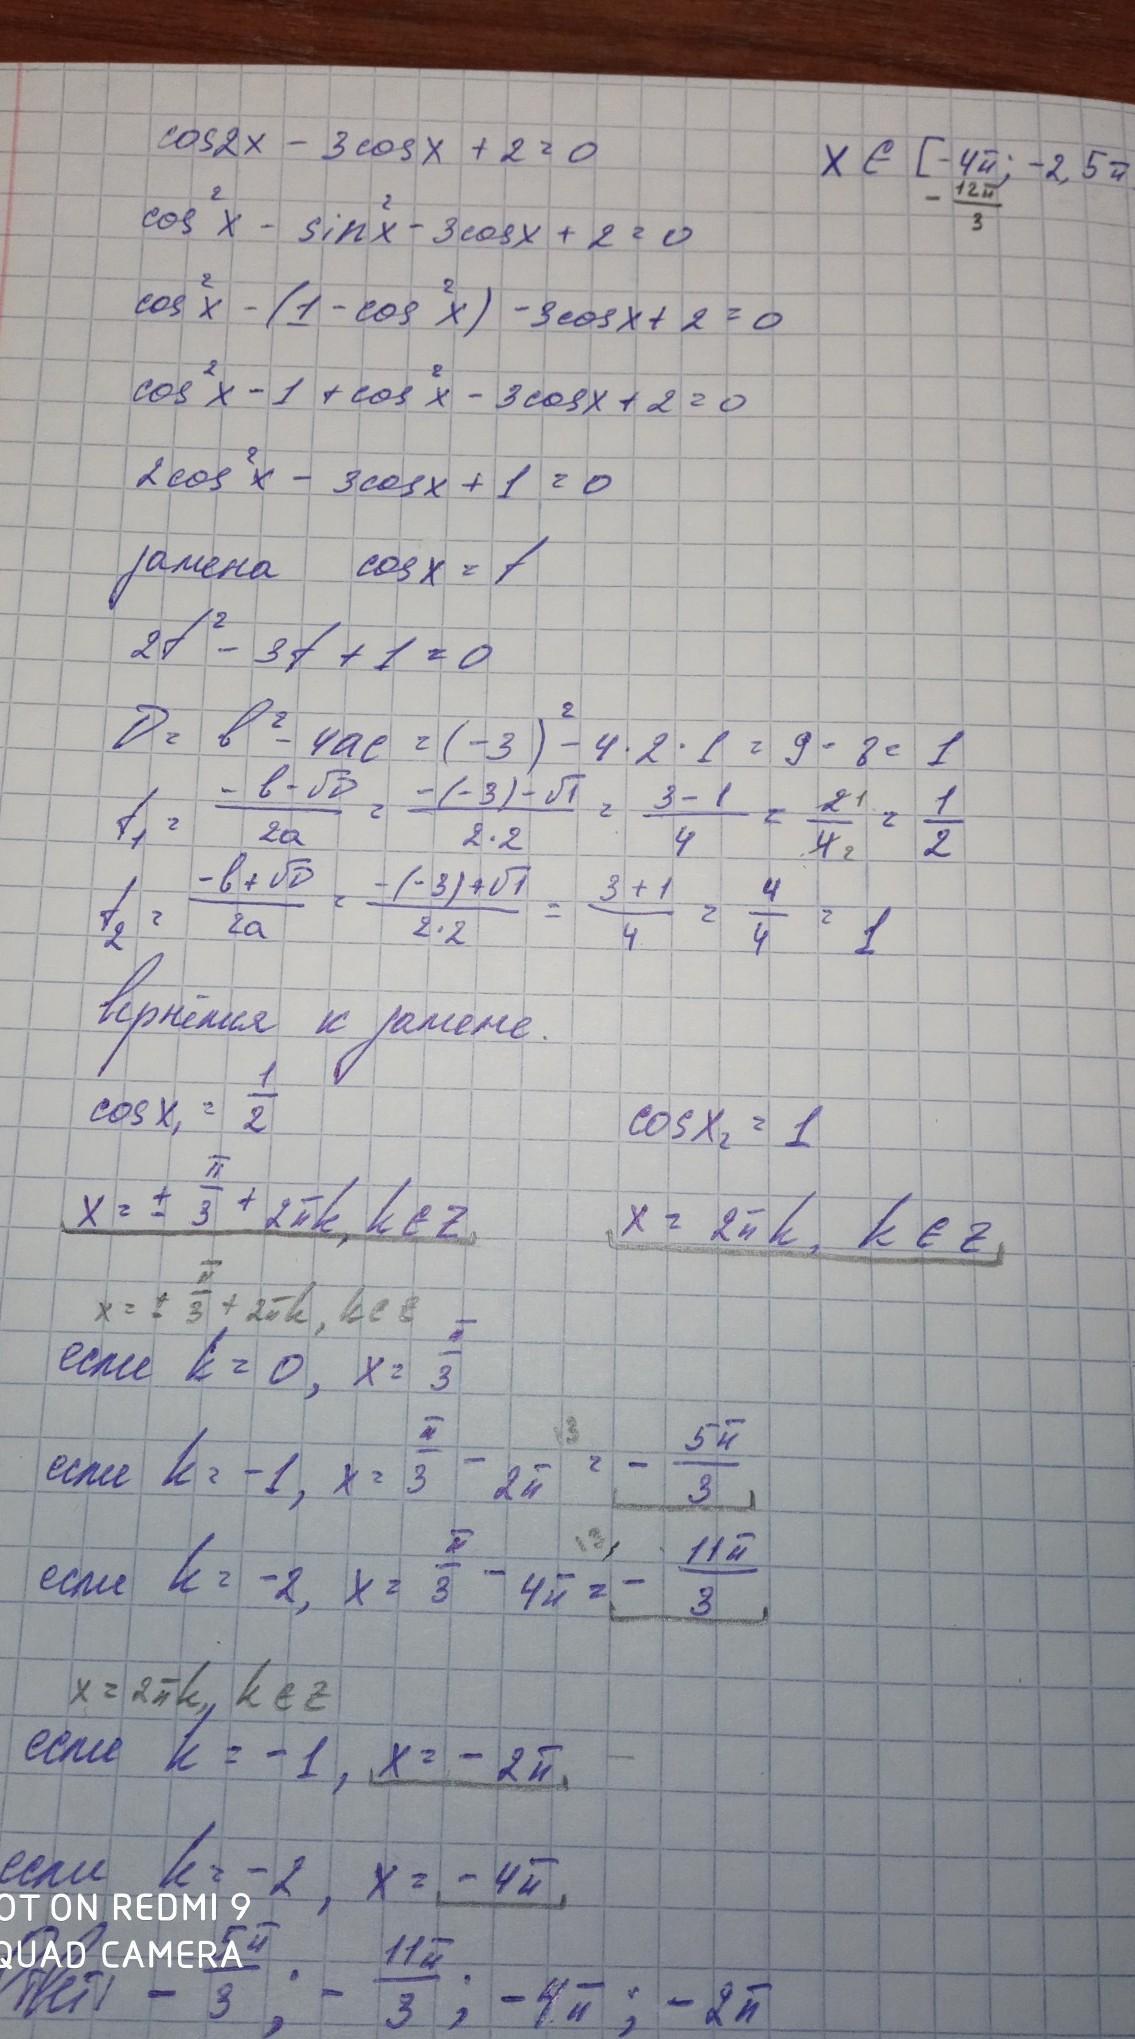 cos2x - 3cosx + 2 = 0
x ∈ [-4π; -2,5π
-12π/3
cos²x - sin²x - 3cosx + 2 = 0
cos²x - (1 - cos²x) - 3cosx + 2 = 0
cos²x - 1 + cos²x - 3cosx + 2 = 0
2cos²x - 3cosx + 1 = 0
замена cosx = t
2t² - 3t + 1 = 0
D = b² - 4ac = (-3)² - 4·2·1 = 9 - 8 = 1
t₁ = (-b-√D)/2a = (-(-3)-√1)/2·2 = (3-1)/4 = 2/4 = 1/2
t₂ = (-b+√D)/2a = (-(-3)+√1)/2·2 = (3+1)/4 = 4/4 = 1
Вернёмся к замене.
cosx₁ = 1/2
cosx₂ = 1
x = ± π/3 + 2πk, k ∈ Z
x = 2πk, k ∈ Z
x = ± π/3 + 2πk, k ∈ Z
если k = 0, x = π/3
если k = -1, x = π/3 - 2π = - 5π/3
если k = -2, x = π/3 - 4π = - 11π/3
x = 2πk, k ∈ Z
если k = -1, x = - 2π
если k = -2, x = - 4π
OT ON REDMI 9
QUAD CAMERA
- 5π/3; - 11π/3; - 4π; - 2π